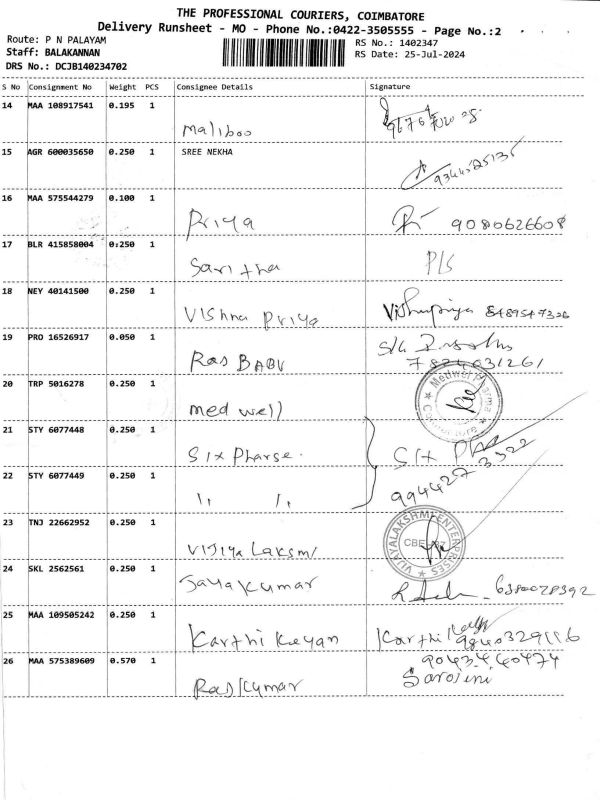 THE PROFESSIONAL COURIERS, COIMBATORE
Delivery Runsheet - MO - Phone No.:0422-3505555 - Page No.:2
Route: P N PALAYAM
Staff: BALAKANNAN
DRS No.: DCJB140234702
RS No.: 1402347
RS Date: 25-Jul-2024
S No Consignment No Weight PCS Consignee Details Signature
14 MAA 108917541 0.195 1 Maliboo
15 AGR 600035650 0.250 1 SREE NEKHA 9344525135
16 MAA 575544279 0.100 1 Priya 9080626608
17 BLR 415858004 0.250 1 Saritha P/S
18 NEY 40141500 0.250 1 Vishnu Priya Vishnupriya
19 PRO 16526917 0.050 1 Ras BABU 7824031261
20 TRP 5016278 0.250 1 med well Medwel Pharma
21 STY 6077448 0.250 1 Six Pharse. Six
22 STY 6077449 0.250 1 " " 994427 3322
23 TNJ 22662952 0.250 1 Vijiya Laksmi VIJAYALAKSHMI ENTERPRISES
24 SKL 2562561 0.250 1 Jayakumar
25 MAA 109505242 0.250 1 Karthi Keyan Karthi
26 MAA 575389609 0.570 1 Raskumar 9043440474
Sarojini